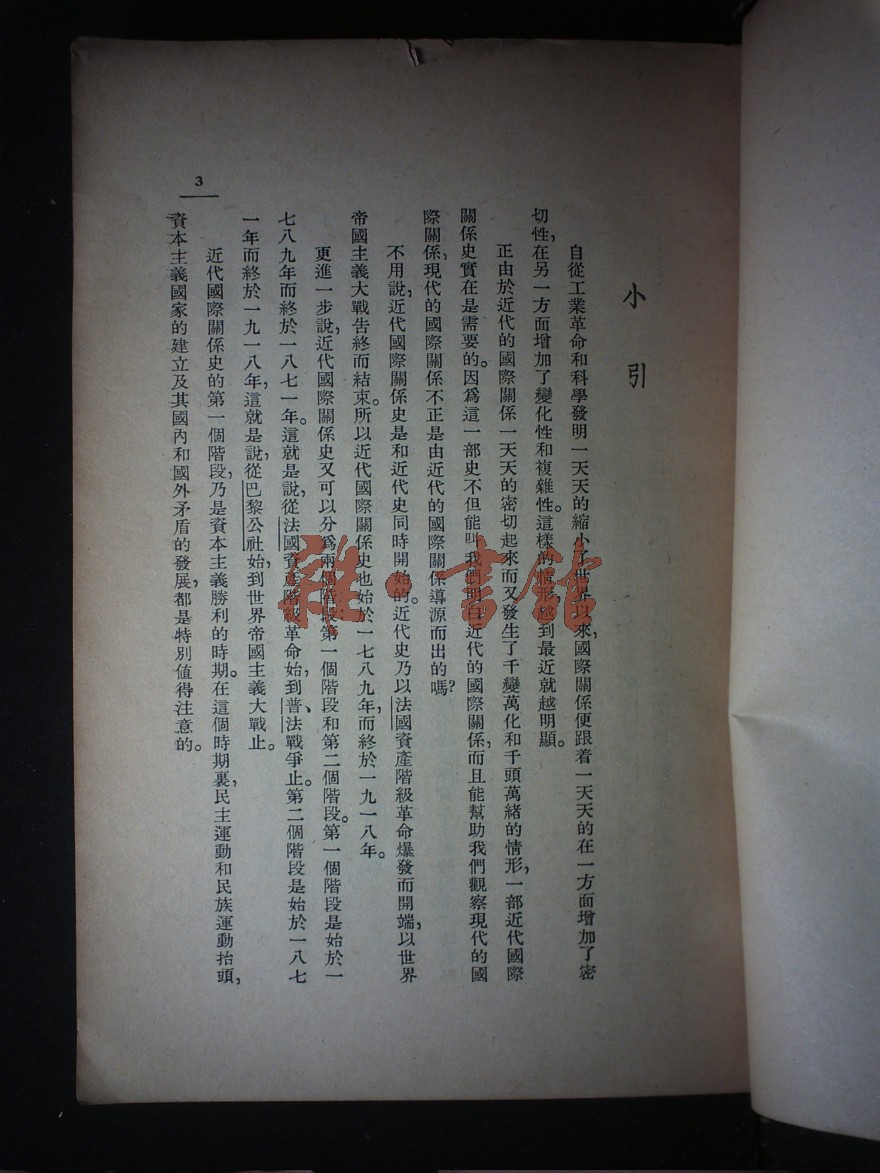 小引
自從工業革命和科學發明一天天的縮小了世界以來,國際關係便跟着一天天的在一方面增加了密
切性,在另一方面增加了變化性和複雜性。這樣的情形,越到最近就越明顯。
正由於近代的國際關係一天天的密切起來而又發生了千變萬化和千頭萬緒的情形,一部近代國際
關係史實在是需要的。因爲這一部史不但能叫我們明白近代的國際關係,而且能幫助我們觀察現代的國
際關係,現代的國際關係不正是由近代的國際關係導源而出的嗎?
不用說,近代國際關係史是和近代史同時開始的。近代史乃以法國資產階級革命爆發而開端,以世界
帝國主義大戰告終而結束。所以近代國際關係史也始於一七八九年,而終於一九一八年。
更進一步說,近代國際關係史又可以分爲兩個階段,第一個階段和第二個階段。第一個階段是始於一
七八九年而終於一八七一年。這就是說,從法國資產階級革命始,到普、法戰爭止。第二個階段是始於一八七
一年而終於一九一八年,這就是說,從巴黎公社始,到世界帝國主義大戰止。
近代國際關係史的第一個階段,乃是資本主義勝利的時期。在這個時期裏,民主運動和民族運動抬頭,
資本主義國家的建立及其國內和國外矛盾的發展,都是特別值得注意的。
3
雜·書館